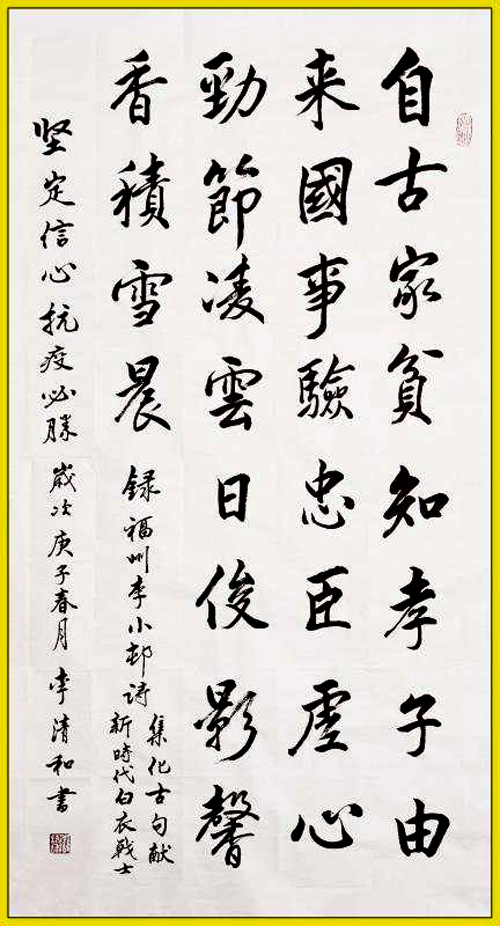 自古家貧知孝子由
来國事驗忠臣虛心
勁節凌雲日俊影馨
香積雪晨
録福州李小邨诗
集化古句献
新時代白衣戰士
坚定信心抗疫必勝
歲次庚子春月李清和書